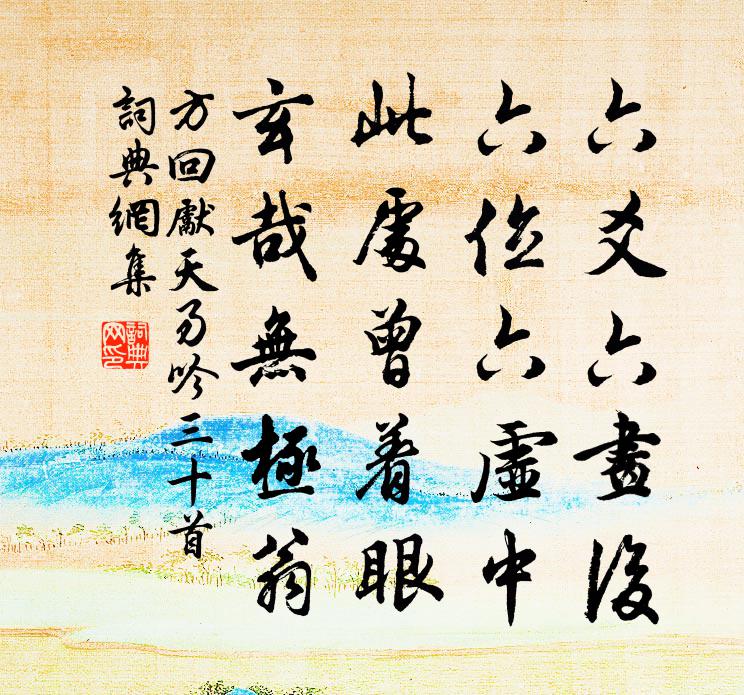 六爻六畫後
六位六虛中
此處曾着眼
玄哉無極翁
方回獻天易吟三十首
詞典網集
詞典網印